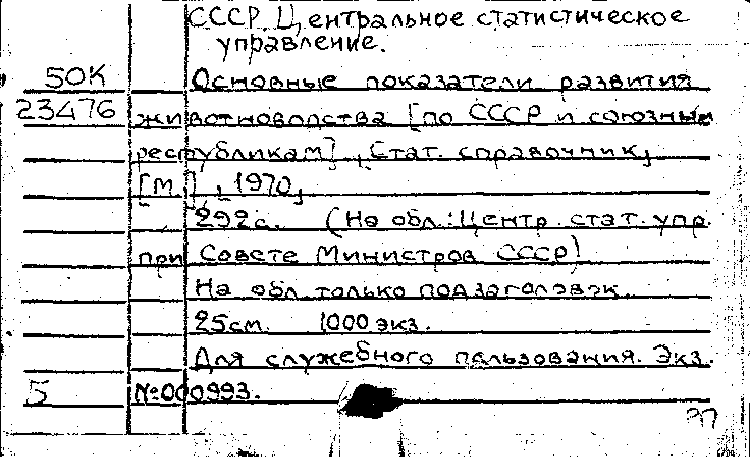 СССР. Центральное статистическое
управление.
50К Основные показатели развития
23476 животноводства [по СССР и союзным
республикам]. Стат. справочник.
[М.], 1970.
292с. (На обл.: Центр. стат. упр.
при Совете Министров СССР)
На обл. только подзаголовок.
25см. 1000 экз.
Для служебного пользования. Экз.
5 №000993.